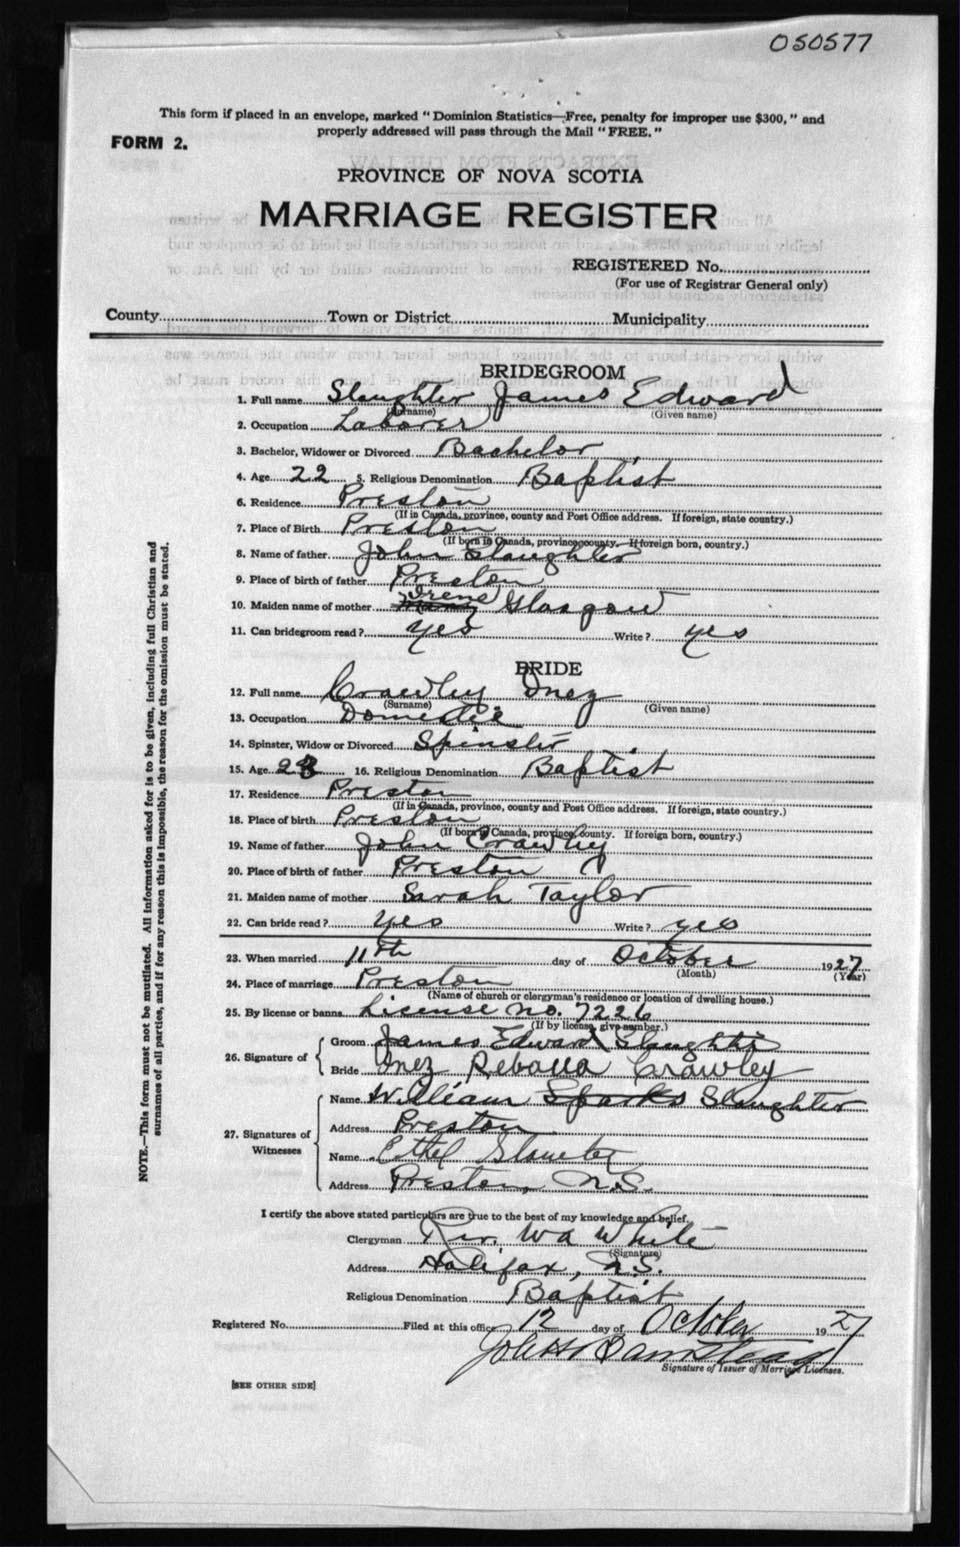 050577
This form if placed in an envelope, marked "Dominion Statistics—Free, penalty for improper use $300," and
properly addressed will pass through the Mail "FREE."
FORM 2.
PROVINCE OF NOVA SCOTIA
MARRIAGE REGISTER
REGISTERED No.
(For use of Registrar General only)
County Town or District Municipality
BRIDEGROOM
1. Full name Slaughter James Edward
(Surname) (Given name)
2. Occupation Laborer
3. Bachelor, Widower or Divorced Bachelor
4. Age 22 5. Religious Denomination Baptist
6. Residence Preston
(If in Canada, province, county and Post Office address. If foreign, state country.)
7. Place of Birth Preston
(If born in Canada, province, county. If foreign born, country.)
8. Name of father John Slaughter
9. Place of birth of father Preston
10. Maiden name of mother Irene Glasgow
11. Can bridegroom read? yes Write? yes
BRIDE
12. Full name Crawley Inez
(Surname) (Given name)
13. Occupation Domestic
14. Spinster, Widow or Divorced Spinster
15. Age 23 16. Religious Denomination Baptist
17. Residence Preston
(If in Canada, province, county and Post Office address. If foreign, state country.)
18. Place of birth Preston
(If born in Canada, province, county. If foreign born, country.)
19. Name of father John Crawley
20. Place of birth of father Preston
21. Maiden name of mother Sarah Taylor
22. Can bride read? yes Write? yes
23. When married 11th day of October 1927
(Month) (Year)
24. Place of marriage Preston
(Name of church or clergyman's residence or location of dwelling house.)
25. By license or banns License no. 7226
(If by license, give number.)
26. Signature of Groom James Edward Slaughter
Bride Inez Crawley
27. Signatures of Witnesses
Name William Sparks Slaughter
Address Preston
Name Ethel
Address Preston, N.S.
I certify the above stated particulars are true to the best of my knowledge and belief.
Clergyman Rev. W A White
(Signature)
Address Halifax, N.S.
Religious Denomination Baptist
Registered No. Filed at this office 12 day of October 1927
Signature of Issuer of Marriage Licenses.
[SEE OTHER SIDE]
NOTE.—This form must not be mutilated. All information asked for is to be given, including full Christian and
surnames of all parties, and if for any reason this is impossible, the reason for the omission must be stated.